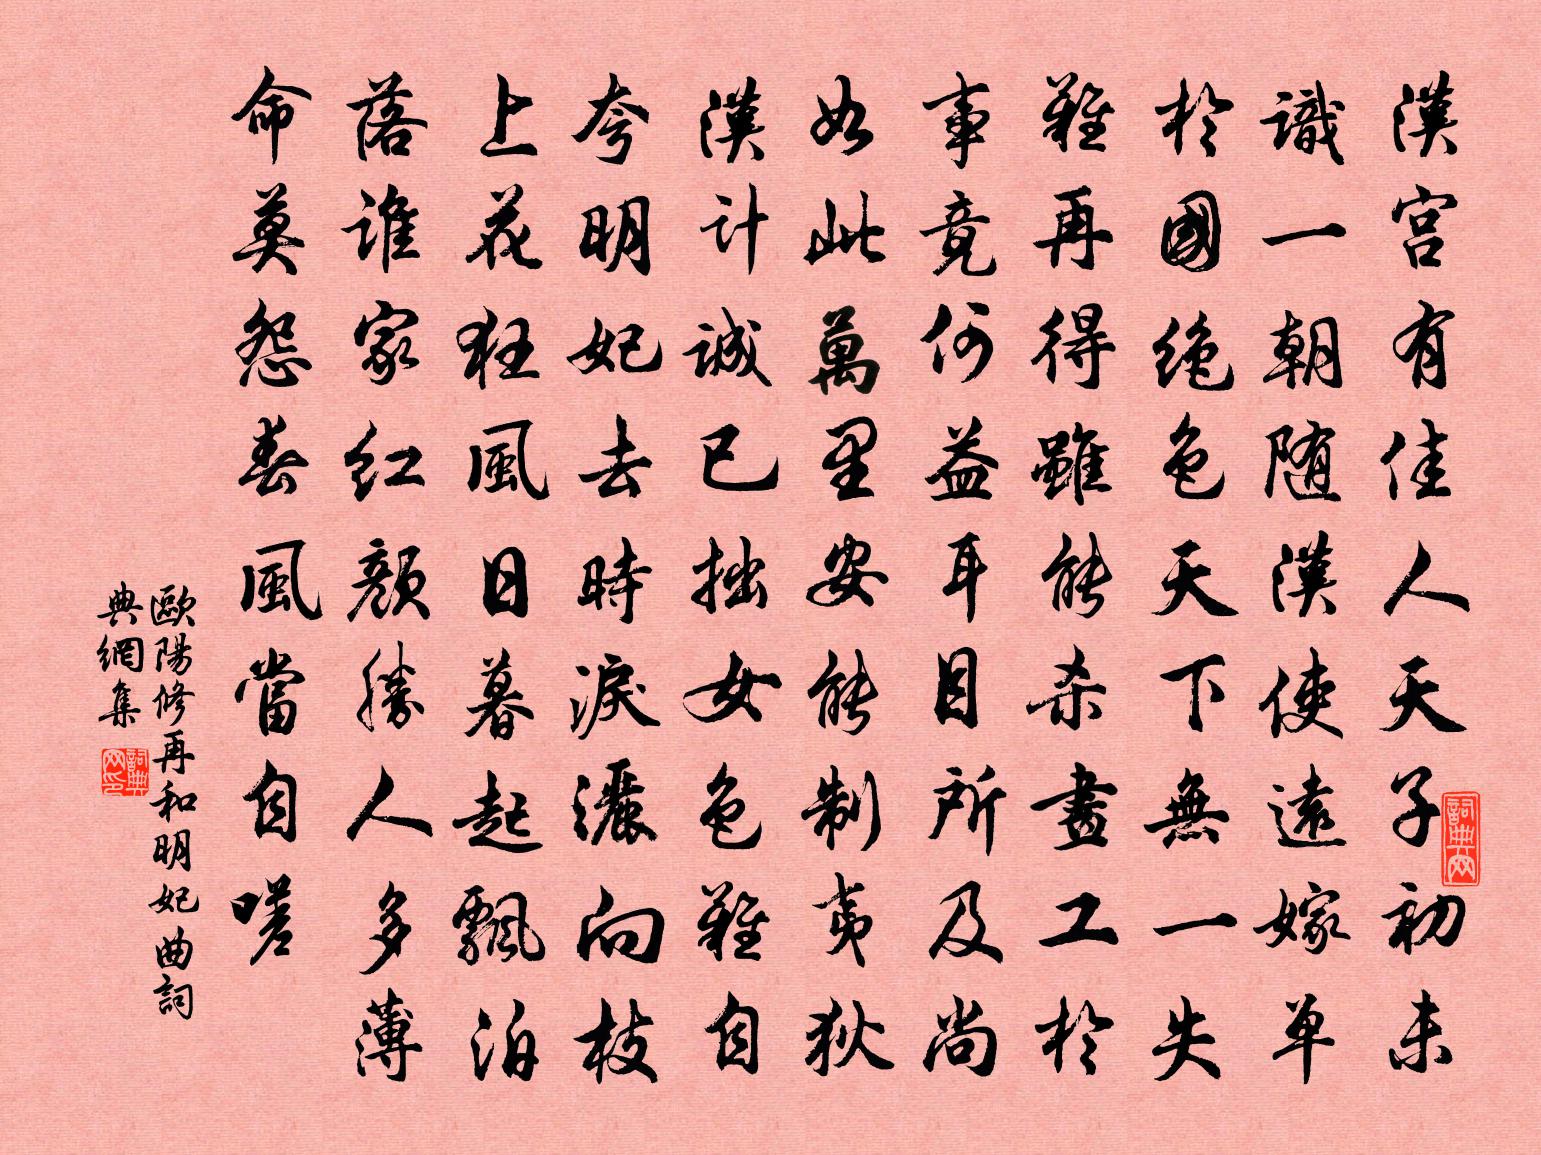 漢宮有佳人天子初未
識一朝随漢使遠嫁单
於國絶色天下無一失
難再得雖能杀畫工於
事竟何益耳目所及尚
如此萬里安能制夷狄
漢計誠已拙女色難自
夸明妃去時淚灑向枝
上花狂風日暮起飄泊
落誰家紅顏勝人多薄
命莫怨春風當自嗟
歐陽修再和明妃曲詞
典網集
詞典网
詞典网印